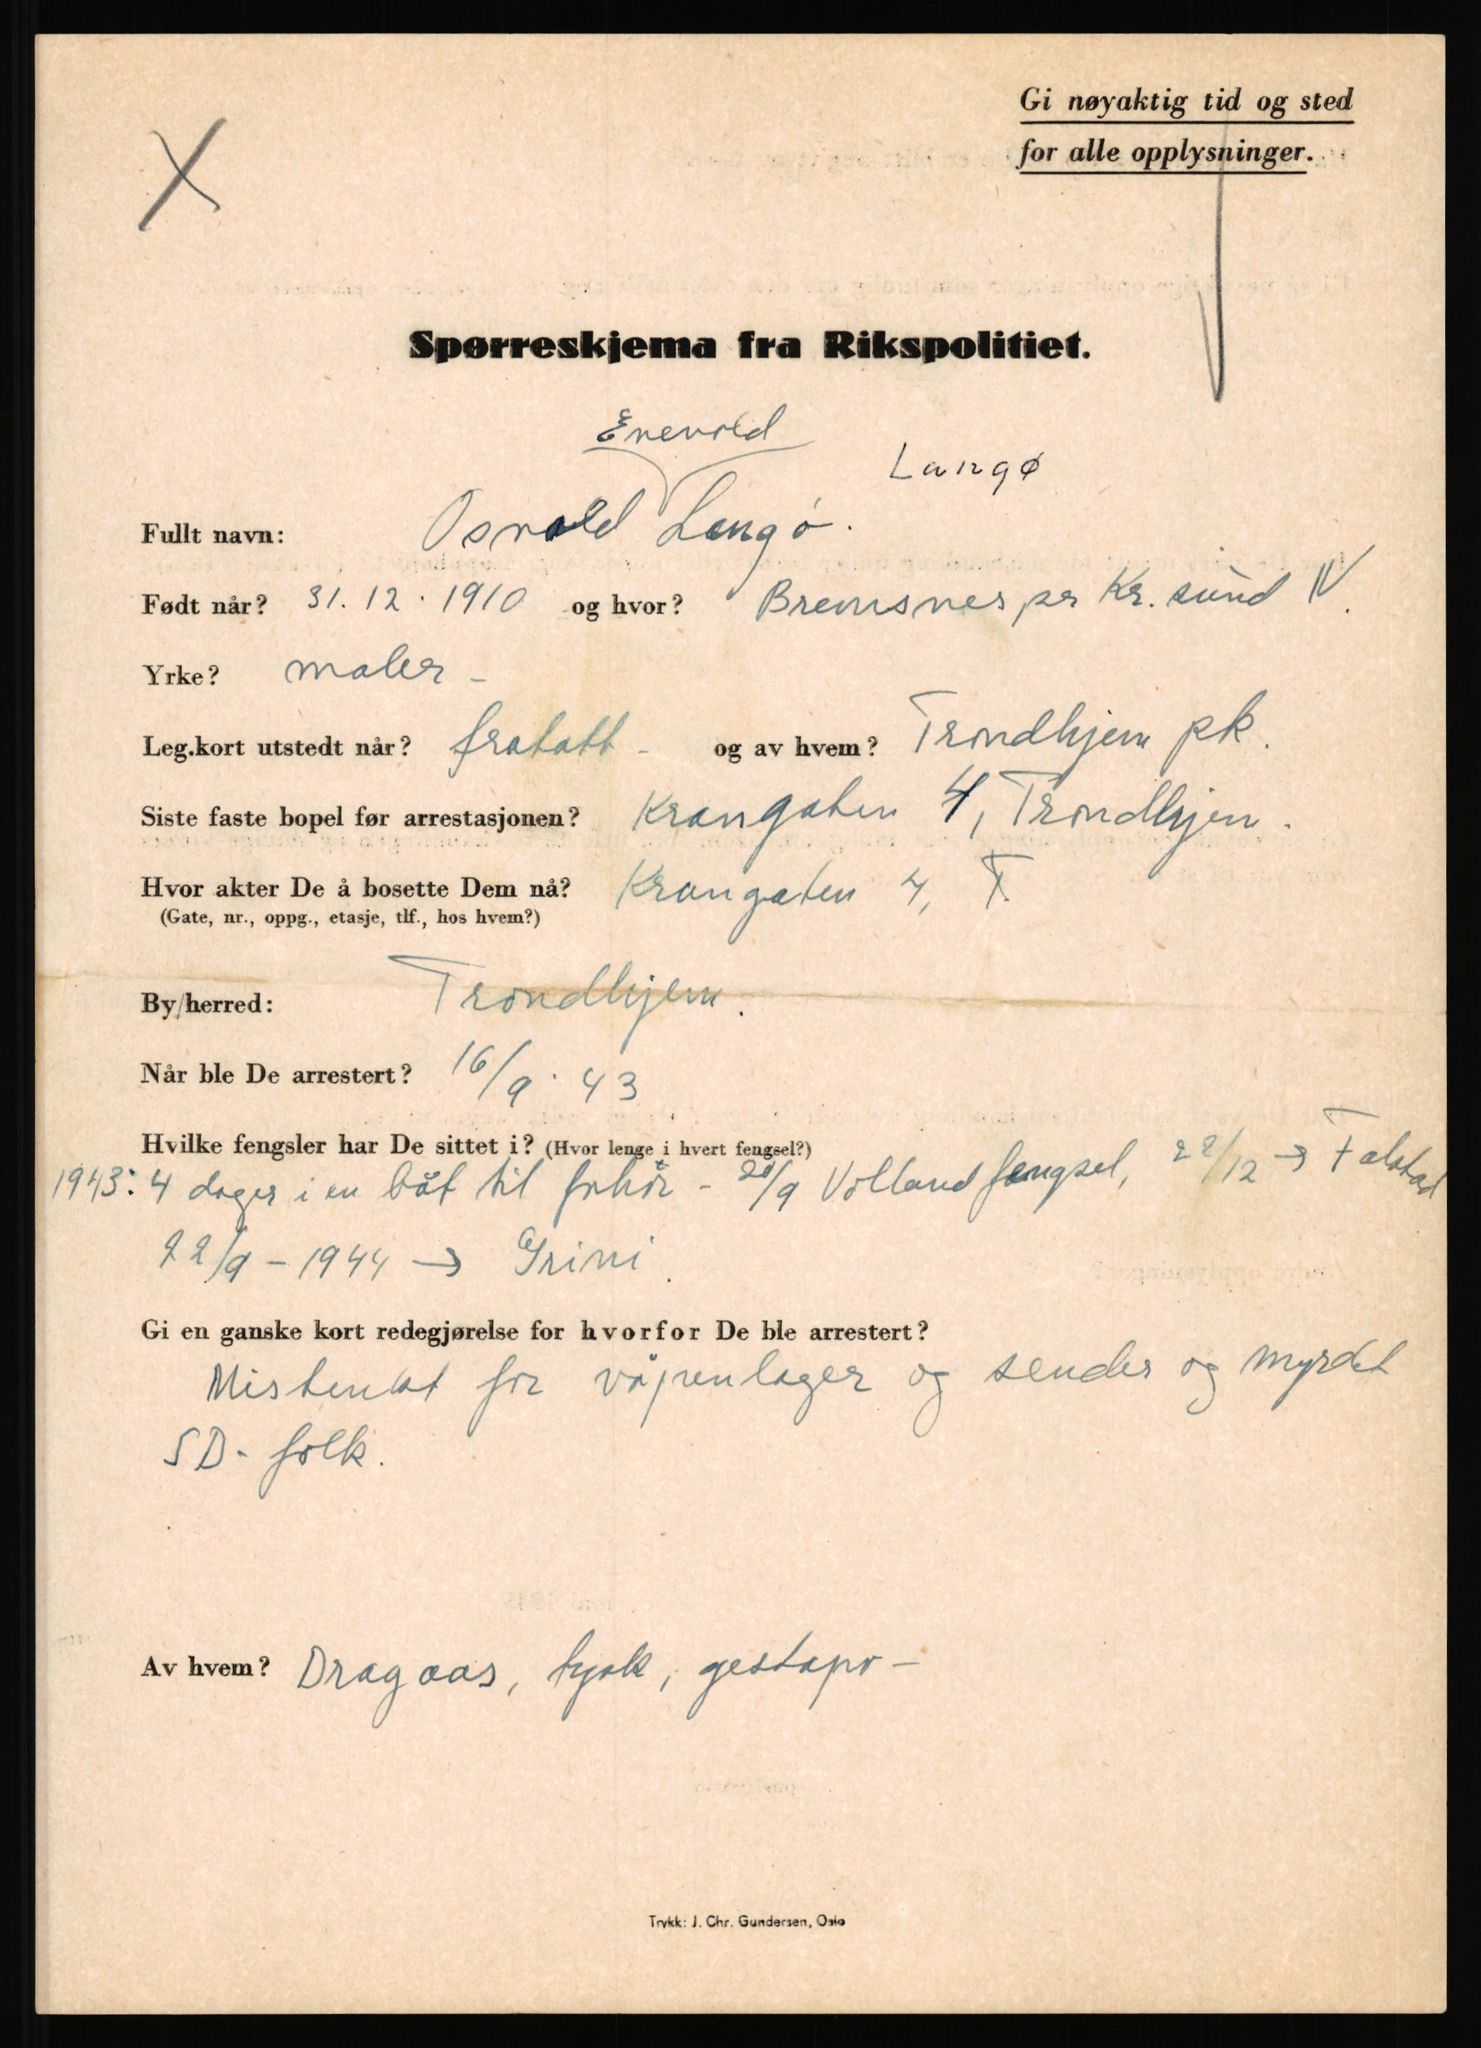 Gi nøyaktig tid og sted
for alle opplysninger.
Spørreskjema fra Rikspolitiet.
Enevold
Langø
Fullt navn: Osvald Langø.
Født når? 31.12.1910 og hvor? Bremsnes, pr Kr.sund N.
Yrke? maler -
Leg.kort utstedt når? fratatt - og av hvem? Trondhjem pk.
Siste faste bopel før arrestasjonen? Krangaten 4, Trondhjem.
Hvor akter De å bosette Dem nå? Krangaten 4, T.
(Gate, nr., oppg., etasje, tlf., hos hvem?)
By/herred: Trondhjem.
Når ble De arrestert? 16/9. 43
Hvilke fengsler har De sittet i? (Hvor lenge i hvert fengsel?)
1943: 4 dager i en båt til forhör - 20/9 Volland fengsel, 22/12 → Falstad
22/9 - 1944 → Grini.
Gi en ganske kort redegjørelse for hvorfor De ble arrestert?
Mistenkt for våpenlager og sender og myrdet
SD- folk.
Av hvem? Dragaas, tysk, gestapo -
Trykk: J. Chr. Gundersen, Oslo